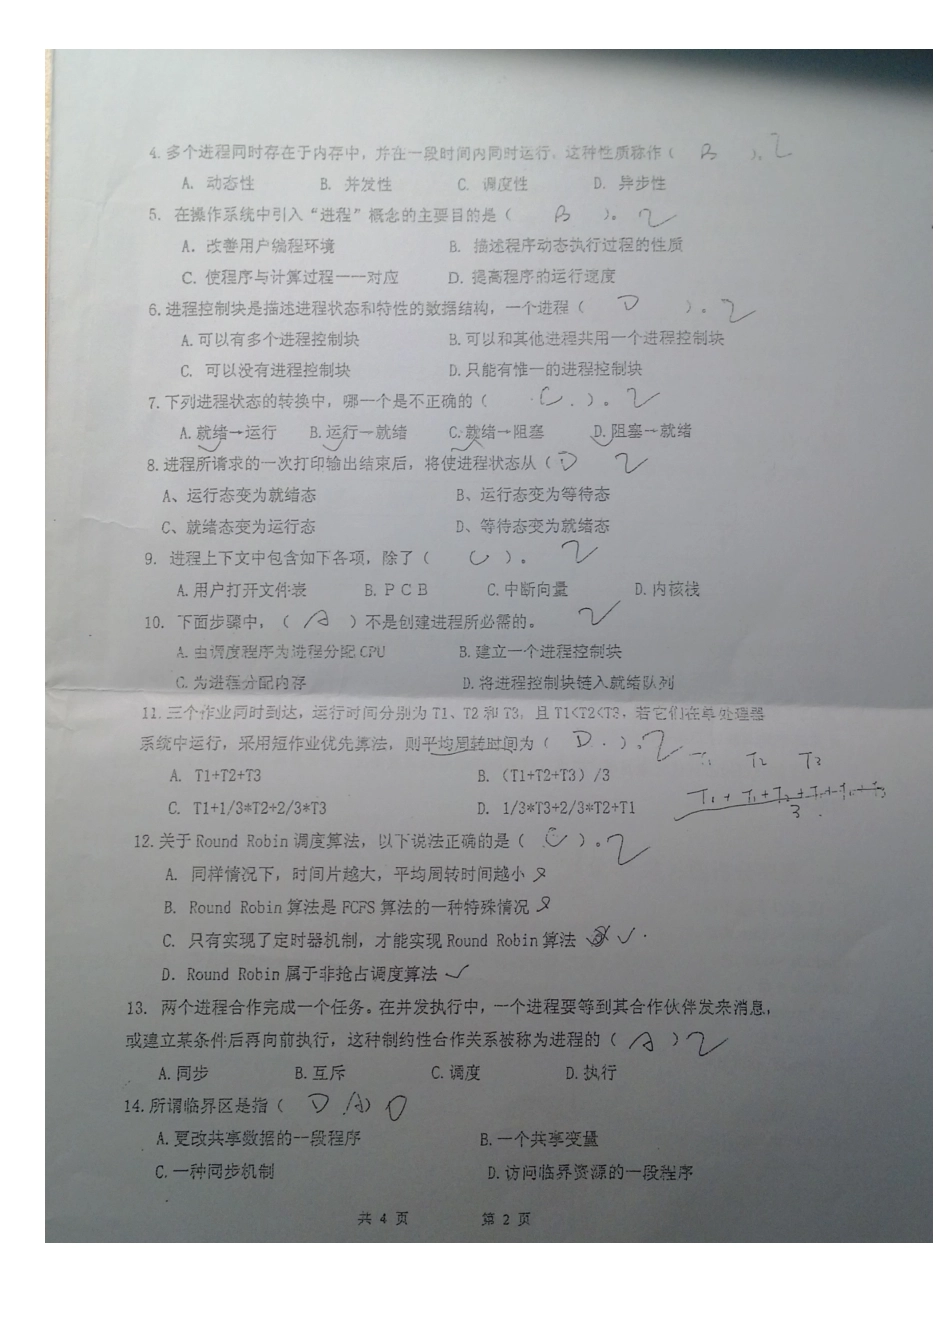 4.多个进程同时存在于内存中，并在一段时间内同时运行，这种性质称作（ B ）。2
A. 动态性 B. 并发性 C. 调度性 D. 异步性
5. 在操作系统中引入“进程”概念的主要目的是（ B ）。2
A. 改善用户编程环境 B. 描述程序动态执行过程的性质
C. 使程序与计算过程一一对应 D. 提高程序的运行速度
6.进程控制块是描述进程状态和特性的数据结构，一个进程（ D ）。2
A.可以有多个进程控制块 B.可以和其他进程共用一个进程控制块
C. 可以没有进程控制块 D.只能有惟一的进程控制块
7.下列进程状态的转换中，哪一个是不正确的（ C ）。2
A.就绪→运行 B.运行→就绪 C.就绪→阻塞 D.阻塞→就绪
8.进程所请求的一次打印输出结束后，将使进程状态从（ D 2
A、运行态变为就绪态 B、运行态变为等待态
C、就绪态变为运行态 D、等待态变为就绪态
9. 进程上下文中包含如下各项，除了（ C ）。2
A.用户打开文件表 B.PCB C.中断向量 D.内核栈
10. 下面步骤中，（ A ）不是创建进程所必需的。2
A.由调度程序为进程分配CPU B.建立一个进程控制块
C.为进程分配内存 D.将进程控制块链入就绪队列
11.三个作业同时到达，运行时间分别为 T1、T2 和 T3，且 T1<T2<T3，若它们在单处理器
系统中运行，采用短作业优先算法，则平均周转时间为（ D ）。2 T1 T2 T3
A. T1+T2+T3 B. (T1+T2+T3) /3
C. T1+1/3*T2+2/3*T3 D. 1/3*T3+2/3*T2+T1
12.关于 Round Robin 调度算法，以下说法正确的是（ C ）。2
A. 同样情况下，时间片越大，平均周转时间越小 ×
B. Round Robin 算法是 FCFS 算法的一种特殊情况 ×
C. 只有实现了定时器机制，才能实现 Round Robin 算法 ✓
D. Round Robin 属于非抢占调度算法 ✓
13. 两个进程合作完成一个任务。在并发执行中，一个进程要等到其合作伙伴发来消息，
或建立某条件后再向前执行，这种制约性合作关系被称为进程的（ A ）2
A.同步 B.互斥 C.调度 D.执行
14.所谓临界区是指（ D A）0
A.更改共享数据的一段程序 B.一个共享变量
C.一种同步机制 D.访问临界资源的一段程序
共 4 页 第 2 页